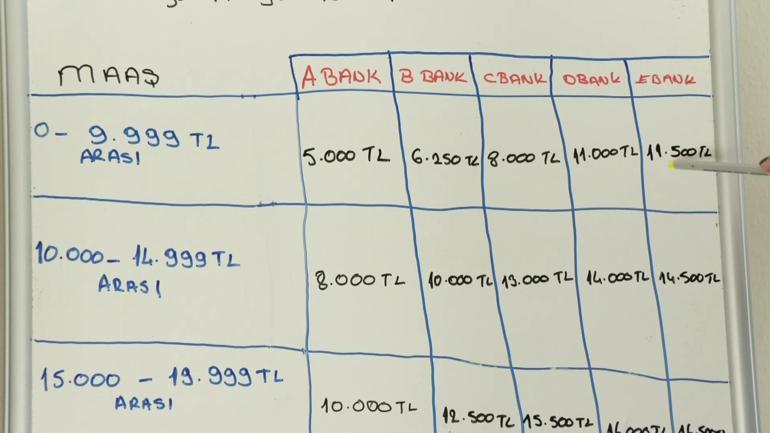 MAAŞ A BANK B BANK C BANK D BANK E BANK
0- 9.999 TL
ARASI
5.000 TL 6.250 TL 8.000 TL 11.000 TL 11.500 TL
10.000- 14.999 TL
ARASI
8.000 TL 10.000 TL 13.000 TL 14.000 TL 14.500 TL
15.000 - 19.999 TL
ARASI
10.000 TL 12.500 TL 15.500 TL